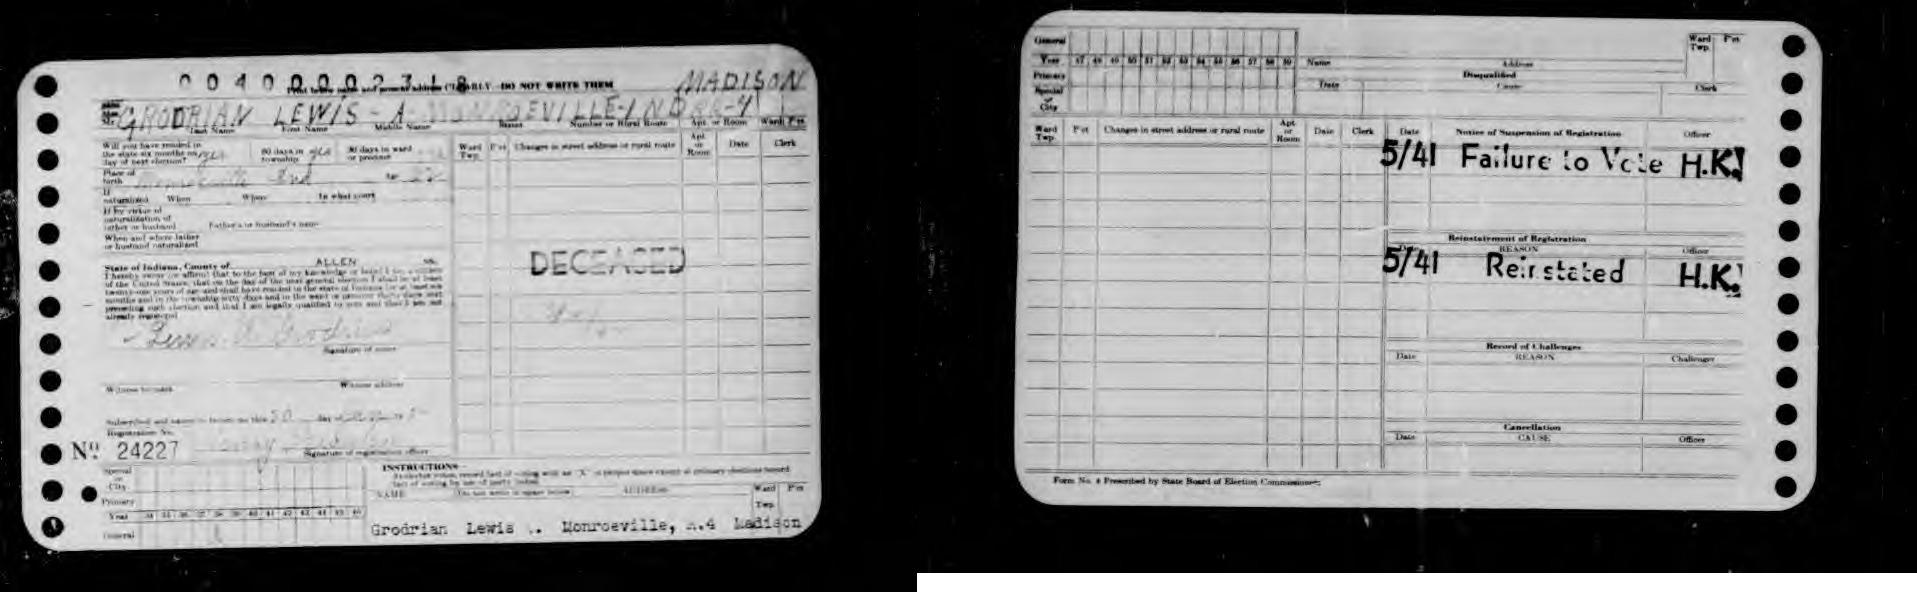 00400002318
Print below name and present address CLEARLY. DO NOT WRITE THEM
MADISON
GRODRIAN LEWIS-A- MONROEVILLE-IND RR-4
Last Name First Name Middle Name Street Number or Rural Route Apt. or Room Ward Pct
Will you have resided in the state six months on day of next election? yes 60 days in township yes 30 days in ward or precinct
Place of birth Monroeville Ind
If naturalized When Where In what court
If by virtue of naturalization of father or husband Father's or husband's name
When and where father or husband naturalized
State of Indiana, County of ALLEN ss.
I hereby swear (or affirm) that to the best of my knowledge or belief I am a citizen
of the United States, that on the day of the next general election I shall be at least
twenty-one years of age and shall have resided in the state of Indiana for at least six
months and in the township sixty days and in the ward or precinct thirty days next
preceding such election and that I am legally qualified to vote and that I am not
already registered
Lewis A Grodrian
Signature of voter
Witness to mark Witness address
Subscribed and sworn to before me this 30 day of
Registration No.
No. 24227
Signature of registration officer
Ward Twp. Pct Changes in street address or rural route Apt. or Room Date Clerk
DECEASED
Special or City
Primary
Year 34 35 36 37 38 39 40 41 42 43 44 45 46
General
INSTRUCTIONS
NAME (Do not write in space below) ADDRESS Ward Twp. Pct
Grodrian Lewis A. Monroeville, R.4 Madison
General
Year 47 48 49 50 51 52 53 54 55 56 57 58 59
Primary
Special or City
Name Address Ward Twp. Pct
Disqualified
Date Cause Clerk
Ward Twp. Pct Changes in street address or rural route Apt. or Room Date Clerk
Date Notice of Suspension of Registration Officer
5/41 Failure to Vote H.K.
Reinstatement of Registration
Date REASON Officer
5/41 Reinstated H.K.
Record of Challenges
Date REASON Challenger
Cancellation
Date CAUSE Officer
Form No. 4 Prescribed by State Board of Election Commissioners